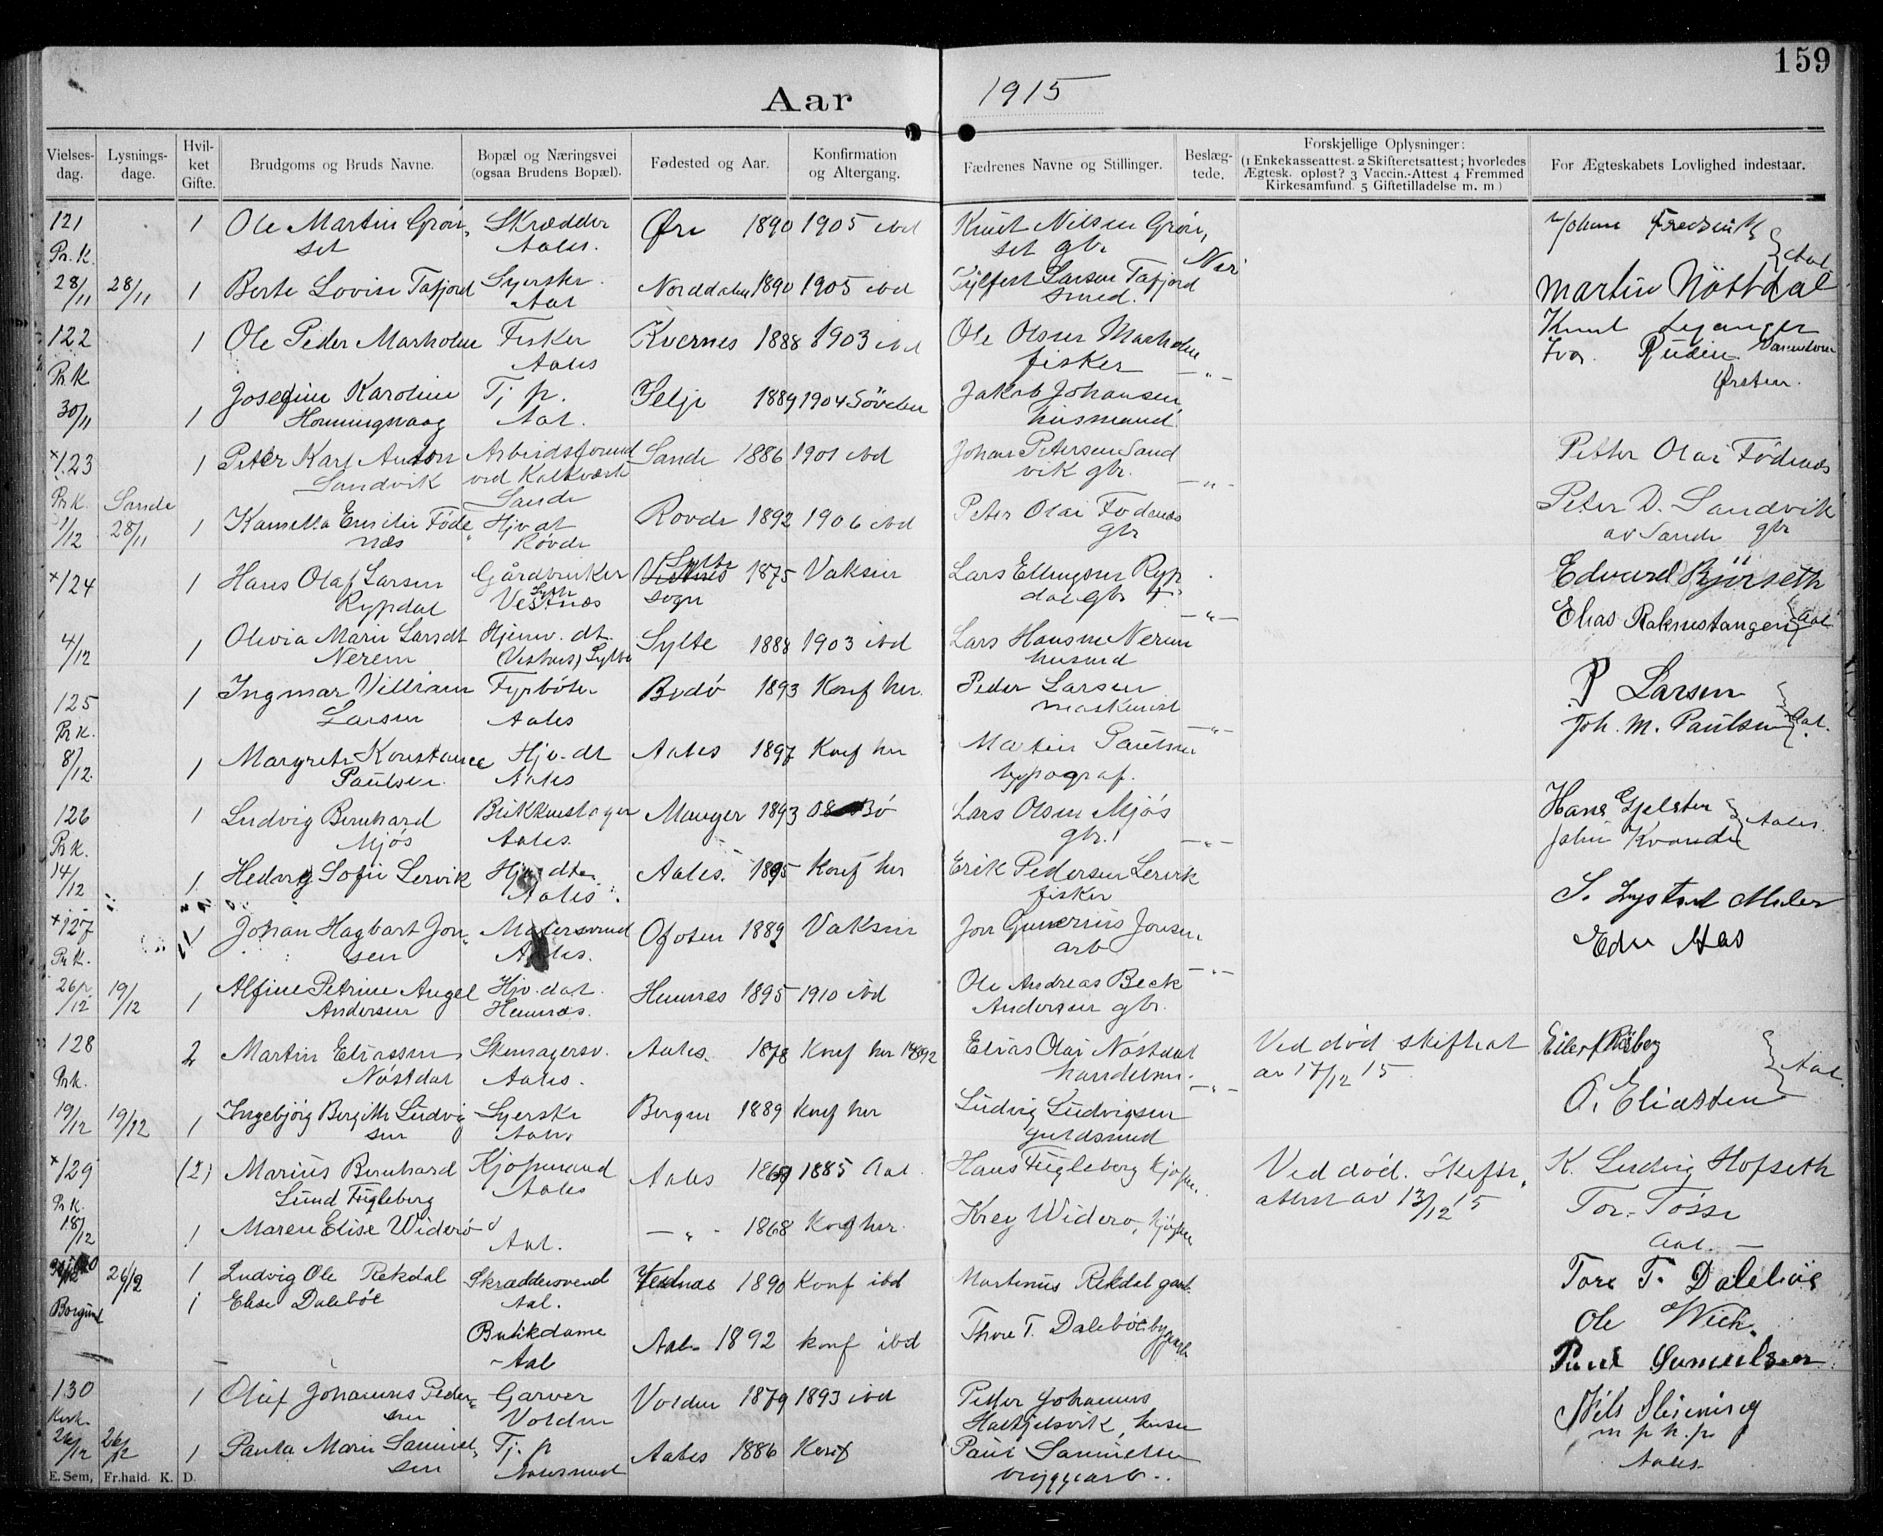 159
Aar 1915
Vielses-dag. Lysnings-dage. Hvil-ket Gifte. Brudgoms og Bruds Navne. Bopæl og Næringsvei (ogsaa Brudens Bopæl). Fødested og Aar. Konfirmation og Altergang. Fædrenes Navne og Stillinger. Beslæg-tede. Forskjellige Oplysninger: (1 Enkekasseattest. 2 Skifteretsattest; hvorledes Ægtesk. opløst? 3 Vaccin.-Attest 4 Fremmed Kirkesamfund. 5 Giftetilladelse m. m) For Ægteskabets Lovlighed indestaar.
121 1 Ole Martin Grön- Skrædder Øre 1890 1905 ibd Knut Nilsen Grön, Johan Fredrik
Pr. K. set Aales. set gbr Nei Aal
28/11 28/11 1 Berte Lovise Tafjord Syerske Norddalen 1890 1905 ibd Sylfest Larsen Tafjord Martin Nöstdal
Aal smed.
122 1 Ole Peder Marholm Fisker Kvernes 1888 1903 ibd Ole Olsen Marholm Knut Leganger
Pr K Aales fisker -"- Ivar Ørsten.
Josefine Karoline Tj. p. Selje 1889 1904 Sövde Jakob Johansen
30/11 1 Honningsvaag Aal. husmand
×123 1 Peter Karl Anton Sande 1886 1901 ibd Johan Petersen Sand Petter Olai Födenæs
Sandvik ved Kalkværk vik gbr. -"-
Pr. K. Sande Sande Peter D. Sandvik
1/12 28/11 1 Kamilla Emilie Föde Hjv. dt Rovde 1892 1906 ibd Peter Olai Fodenæs av Sande gbr
næs Rövde gbr
×124 1 Hans Olaf Larsen Gårdbruker Sylte 1875 Vaksin Lars Ellingsen Ryp Edvard Björseth
Rypdal Sylte Vestnæs sogn dal gbr † -"- Elias Raknestangen Aal
4/12 1 Olivia Marie Larsdt Hjemv. dt. Sylte 1888 1903 ibd Lars Hansen Nerem
Nerem (Vestnes) Sylte husmd
125 1 Ingmar Villiam Fyrböter Bodö 1893 Konf her. Peder Larsen P Larsen
Pr K. Larsen Aales maskinist -"- Joh. M. Paulsen Aal.
8/12. 1 Margrete Konstance Hjv. dt Aales 1897 Konf her Martin Paulsen
Paulsen. Aales typograf.
126 1 Ludvig Bernhard Aales. Manger 1893 08 Bö Lars Olsen Mjös Hans Gjelsten Aales.
Pr K. Mjös gbr. -"- John Kvande
14/12 1 Hedvig Sofie Lervik Hjv. dtr. Aales. 1895 Konf her Erik Pedersen Lervik
Aales fisker S. Lystad Maler
×127 1 Johan Hagbart Jon- Malersvend Ofoten 1889 Vaksin Jon Gunerius Jonsen Edv Aas
Pr K. sen Aales. arb -"-
26/12 19/12 1 Alfine Petrine Angel Hjv. dat. Hemnes 1895 1910 ibd Ole Andreas Beck
Andersen Hemnæs. Andersen gbr.
128 2 Martin Eliassen Skomagersv. Aales. 1878 Konf her 1892 Elias Olai Nöstdal Ved död skifteat
Pr K. Nöstdal Aales. handelsm. -"- av 17/12 15 Aal.
19/12 19/12 1 Ingebjörg Bergithe Ludvig Syerske Bergen 1889 Konf her Ludvig Ludvigsen O. Eliassen
sen Aales guldsmed
×129 (2) Marius Bernhard Kjøpmand Aales 1869 1885 Aal. Hans Fugleberg kjøpm. Ved död. Skifte, K. Ludvig Hofseth
Pr K. Lund Fugleberg Aales attest av 13/12 15 Tor. Tösse
18/12 1 Maren Elise Widerö Aal. -"- 1868 Konf her. Krey Widerø, kjøpm Aal.
26/12 1 Ludvig Ole Rekdal Skræddersvend Vestnæs 1890 Konf ibd Martinus Rekdal gaarb Tore T. Daleböe
Borgund 1 Elise Daleböe Aal. Ole Wich.
Butikdame Aal- 1892 konf ibd Thore T. Daleböe byggarb
-Aal Paul Samuelsen
130 1 Oluf Johannes Peder- Garver Volden 1879 1893 ibd Petter Johannes Nils Skinning
Kirk. sen Volden Halkjelsvik, husm m p h. p.
26/12 26/12 1 Paula Marie Samuel- Tj. p Aales 1886 Konf Paul Samuelsen Aales.
sen Aalesund bryggearb.
E. Sem, Fr.hald. K. D.